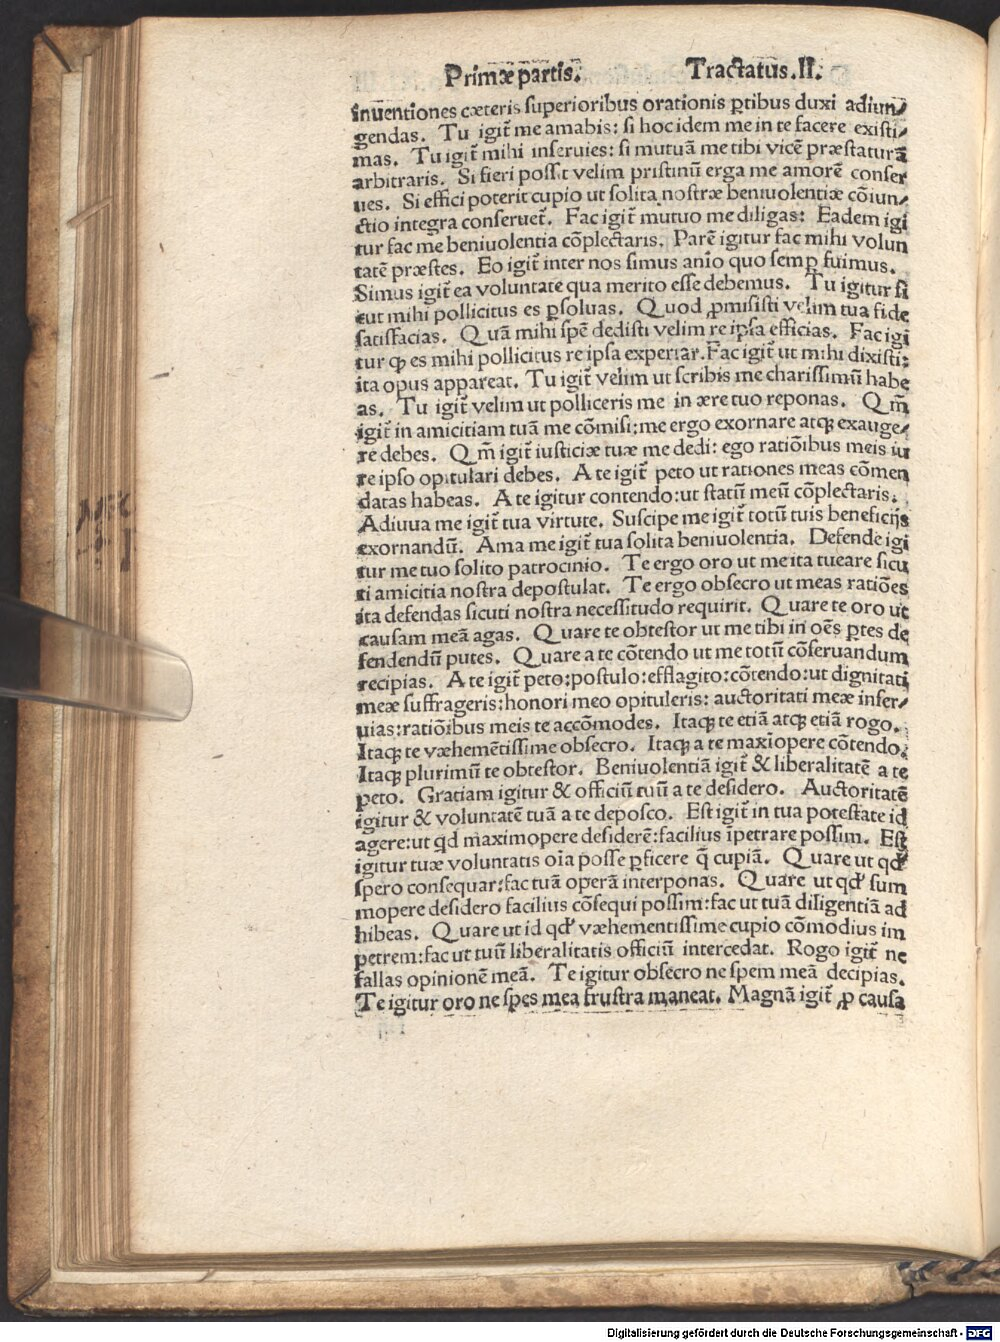 Primæ partis. Tractatus.II.
inuentiones cæteris superioribus orationis ꝑtibus duxi adiun⸗
gendas. Tu igit̃ me amabis: si hoc idem me in te facere existi⸗
mas. Tu igit̃ mihi inseruies: si mutuā me tibi vicē præstaturā
arbitraris. Si fieri possit velim pristinū erga me amorē conser
ues. Si effici poterit cupio ut solita nostræ beniuolentiæ cōiun⸗
ctio integra conseruet̃. Fac igit̃ mutuo me diligas: Eadem igi
tur fac me beniuolentia cōplectaris. Parē igitur fac mihi volun
tatē præstes. Eo igit̃ inter nos simus anīo quo semꝑ fuimus.
Simus igit̃ ea voluntate qua merito esse debemus. Tu igitur si
cut mihi pollicitus es ꝑsoluas. Quod ꝓmisisti velim tua fide
satisfacias. Quā mihi spē dedisti velim re ipsa efficias. Fac igi
tur ꝙ es mihi pollicitus re ipsa experiar. Fac igit̃ ut mihi dixisti:
ita opus appareat. Tu igit̃ velim ut scribis me charissimū habe
as. Tu igit̃ velim ut polliceris me in ære tuo reponas. Qm̄
igit̃ in amicitiam tuā me cōmisi: me ergo exornare atqꝫ exauge⸗
re debes. Qm̄ igit̃ iusticiæ tuæ me dedi: ego ratiōibus meis iu
re ipso opitulari debes. A te igit̃ peto ut rationes meas cōmen
datas habeas. A te igitur contendo: ut statū meū cōplectaris.
Adiuua me igit̃ tua virtute. Suscipe me igit̃ totū tuis beneficijs
exornandū. Ama me igit̃ tua solita beniuolentia. Defende igi
tur me tuo solito patrocinio. Te ergo oro ut me ita tueare sicu
ti amicitia nostra depostulat. Te ergo obsecro ut meas ratiōes
ita defendas sicuti nostra necessitudo requirit. Quare te oro ut
causam meā agas. Quare te obtestor ut me tibi in oēs ꝑtes de
fendendū putes. Quare a te cōtendo ut me totū cōseruandum
recipias. A te igit̃ peto: postulo: efflagito: cōtendo: ut dignitati
meæ suffrageris: honori meo opituleris: auctoritati meæ inser⸗
uias: ratiōibus meis te accōmodes. Itaqꝫ te etiā atqꝫ etiā rogo.
Itaqꝫ te væhemētissime obsecro. Itaqꝫ a te maxīopere cōtendo.
Itaqꝫ plurimū te obtestor. Beniuolentiā igit̃ & liberalitatē a te
peto. Gratiam igitur & officiū tuū a te desidero. Auctoritatē
igitur & voluntatē tuā a te deposco. Est igit̃ in tua potestate id
agere: ut qd maximopere desiderē: facilius īpetrare possim. Est
igitur tuæ voluntatis oīa posse ꝑficere q̄ cupiā. Quare ut qd'
spero consequar: fac tuā operā interponas. Quare ut qd' sum
mopere desidero facilius cōsequi possim: fac ut tuā diligentiā ad
hibeas. Quare ut id qd' væhementissime cupio cōmodius im
petrem: fac ut tuū liberalitatis officiū intercedat. Rogo igit̃ ne
fallas opinionē meā. Te igitur obsecro ne spem meā decipias.
Te igitur oro ne spes mea frustra maneat. Magnā igit̃ ꝓ causa
Digitalisierung gefördert durch die Deutsche Forschungsgemeinschaft - DFG